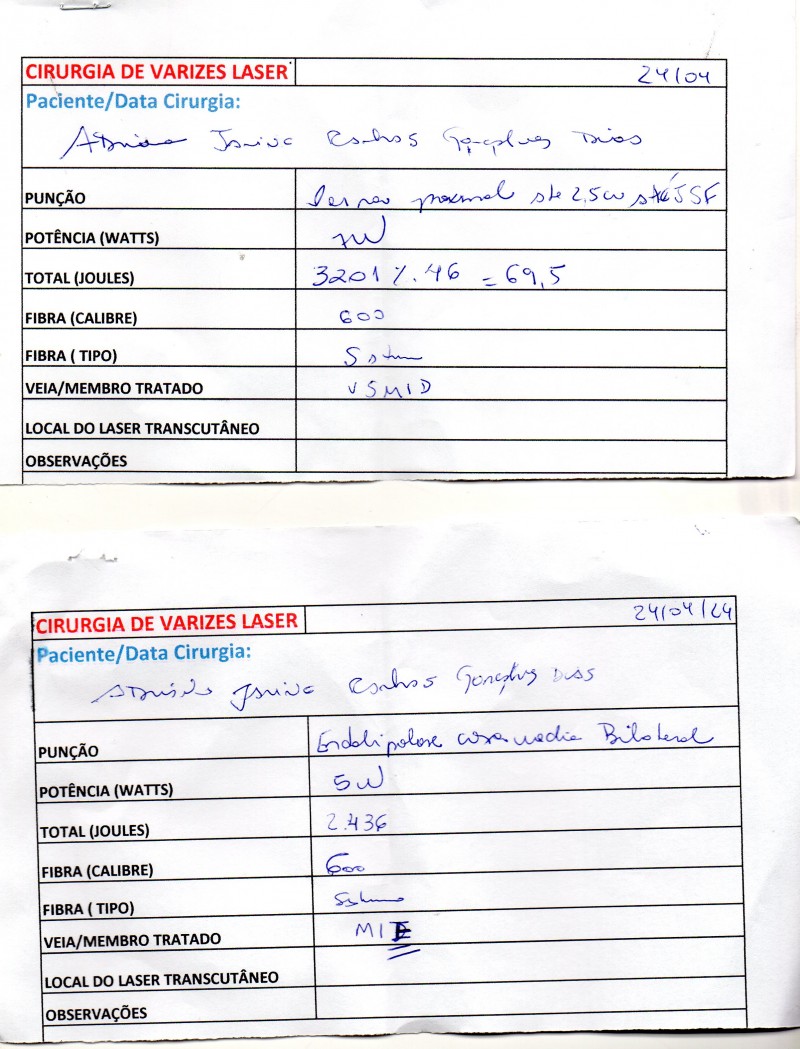 CIRURGIA DE VARIZES LASER 24/04
Paciente/Data Cirurgia:
Gonçalves Dias
PUNÇÃO proximal até 2,5cm JSF
POTÊNCIA (WATTS)
TOTAL (JOULES) 3201 %. 46 = 69,5
FIBRA (CALIBRE) 600
FIBRA ( TIPO)
VEIA/MEMBRO TRATADO VSMID
LOCAL DO LASER TRANSCUTÂNEO
OBSERVAÇÕES
CIRURGIA DE VARIZES LASER 24/04/24
Paciente/Data Cirurgia:
Gonçalves Dias
PUNÇÃO Endolipolise coxa media Bilateral
POTÊNCIA (WATTS) 5W
TOTAL (JOULES) 2.436
FIBRA (CALIBRE) 600
FIBRA ( TIPO)
VEIA/MEMBRO TRATADO
LOCAL DO LASER TRANSCUTÂNEO
OBSERVAÇÕES